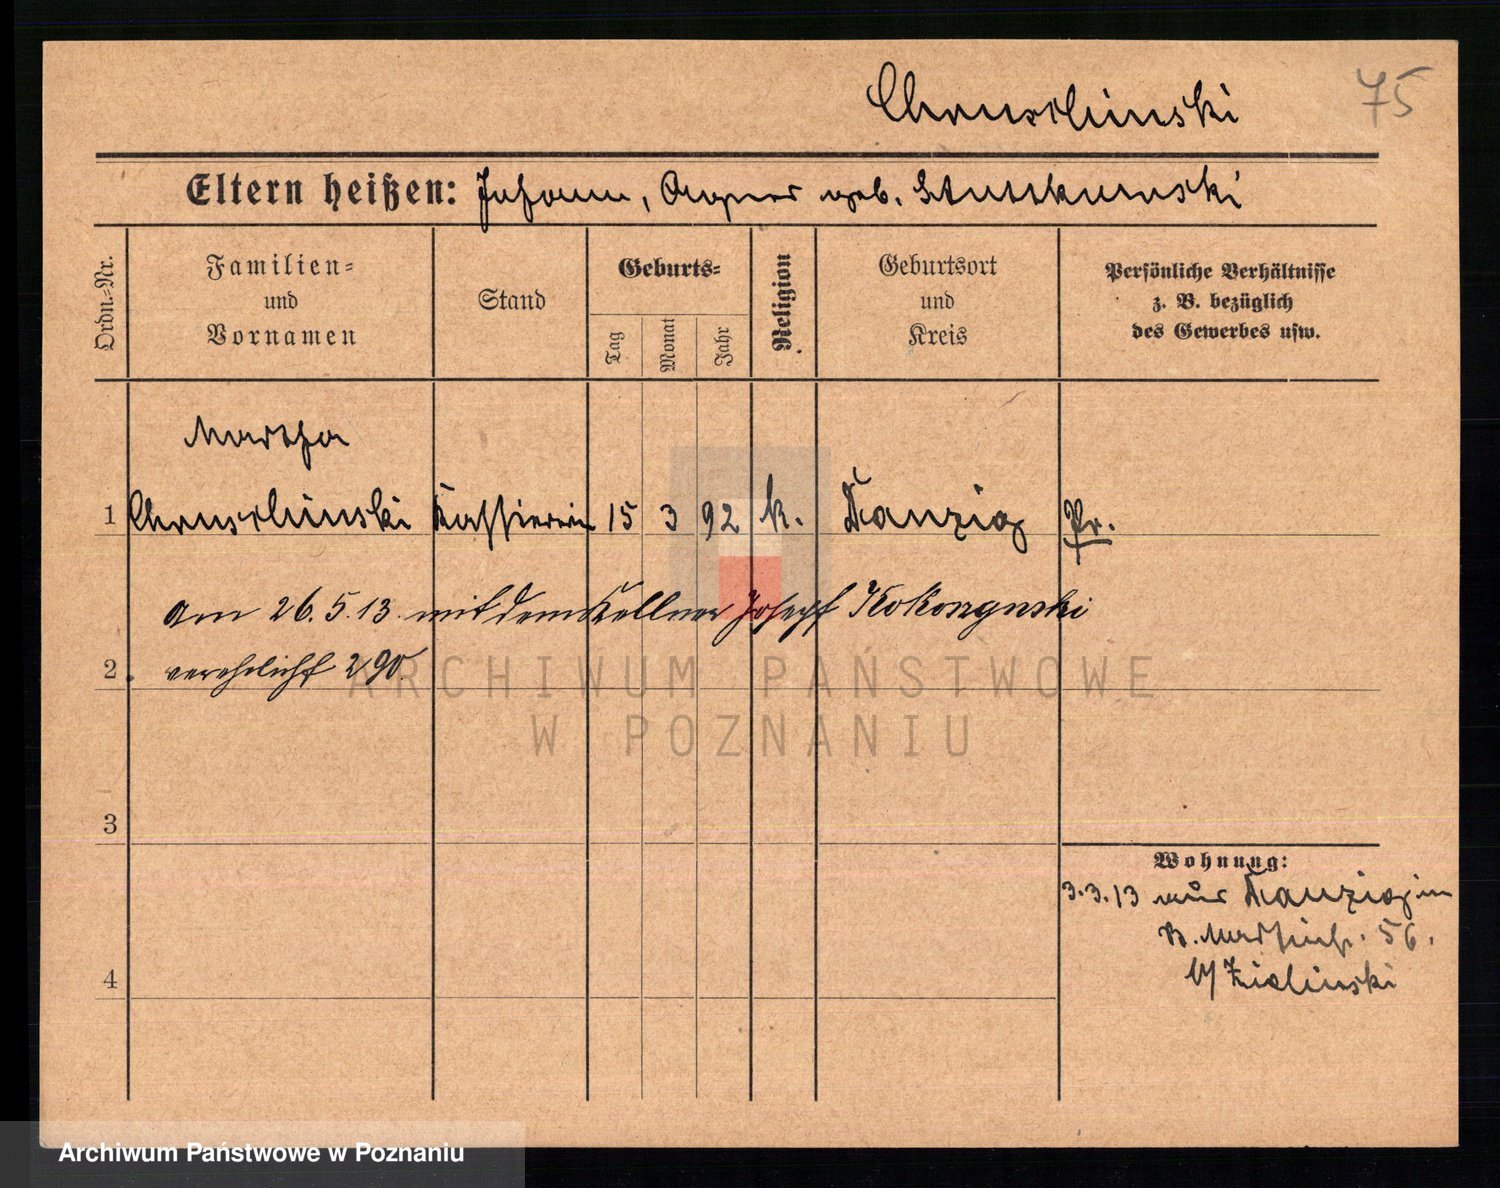 Chruschinski 75
Eltern heißen: Johann, Agnes geb.
Ordn.-Nr.
Familien-
und
Vornamen
Stand
Geburts-
Tag
Monat
Jahr
Religion
Geburtsort
und
Kreis
Persönliche Verhältnisse
z. B. bezüglich
des Gewerbes usw.
Martha
1 Chruschinski Kassiererin 15 3 92 k. Danzig Pr.
am 26.5.13. mit dem Kellner Joseph Kokoszynski
2. verehelicht 290.
3
Wohnung:
3.3.13 aus Danzig in
56.
4 b/ Zielinski
ARCHIWUM PAŃSTWOWE
W POZNANIU
Archiwum Państwowe w Poznaniu